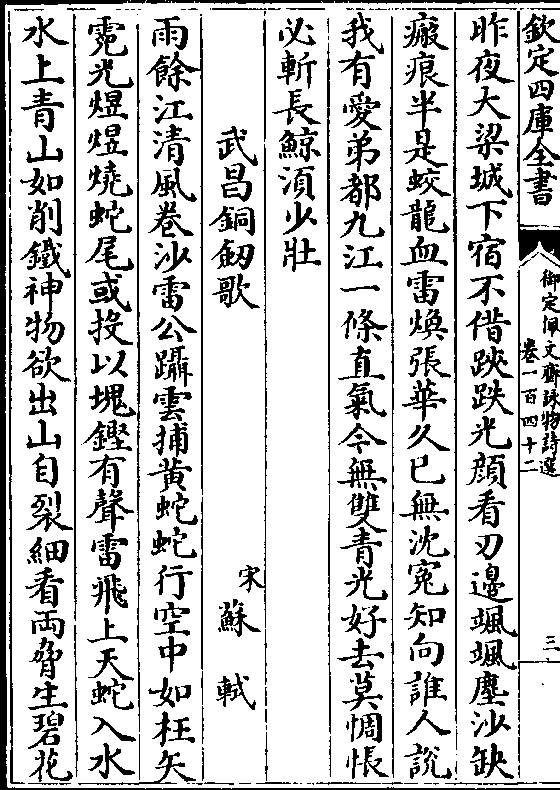 欽定四庫全書
御定佩文齋詠物詩選
卷一百四十二
三
昨夜大梁城下宿不借跌跌光顔看刃邊颯颯塵沙缺
瘢痕半是蛟龍血雷煥張華久已無沈寃知向誰人說
我有愛弟都九江一條直氣今無雙青光好去莫惆悵
必斬長鯨湏少壯
武昌銅劒歌
宋蘇軾
雨餘江清風卷沙雷公躡雲捕黄蛇蛇行空中如枉矢
電光煜煜燒蛇尾或投以塊鏗有聲雷飛上天蛇入水
水上青山如削鐵神物欲出山自裂細看兩脅生碧花